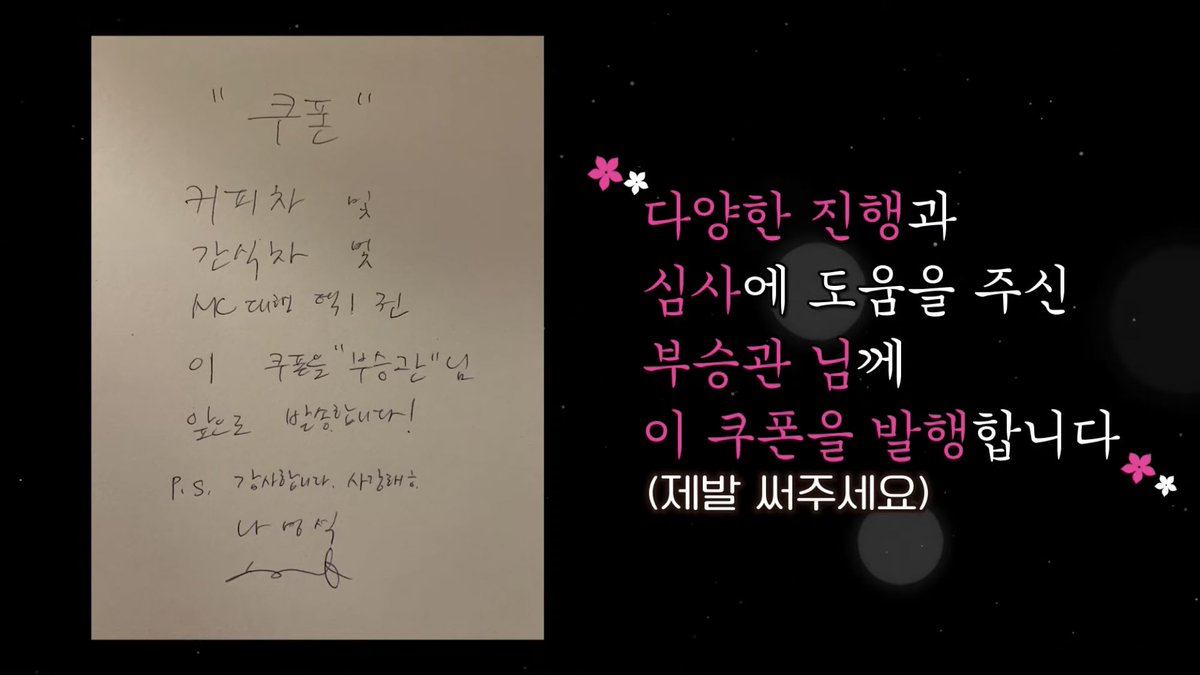 " 쿠폰 "
커피차 및
간식차 및
MC 대행 역 1 권
이 쿠폰을 "부승관"님
앞으로 발송합니다!
P.S. 감사합니다. 사랑해요.
나영석
다양한 진행과
심사에 도움을 주신
부승관 님께
이 쿠폰을 발행합니다
(제발 써주세요)